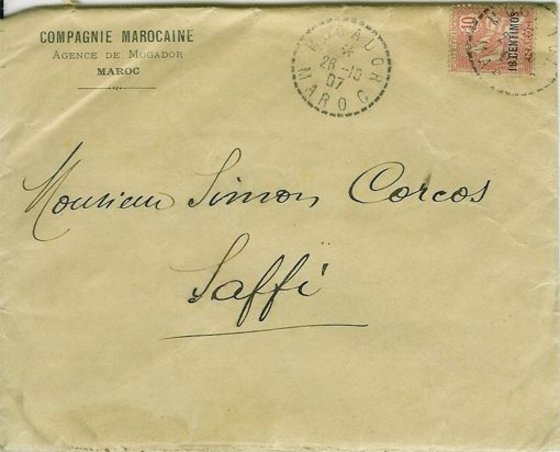 COMPAGNIE MAROCAINE
AGENCE DE MOGADOR
MAROC
MOGADOR
26-10
07
MAROC
10
10 CENTIMOS
Monsieur Simon Corcos
Saffi